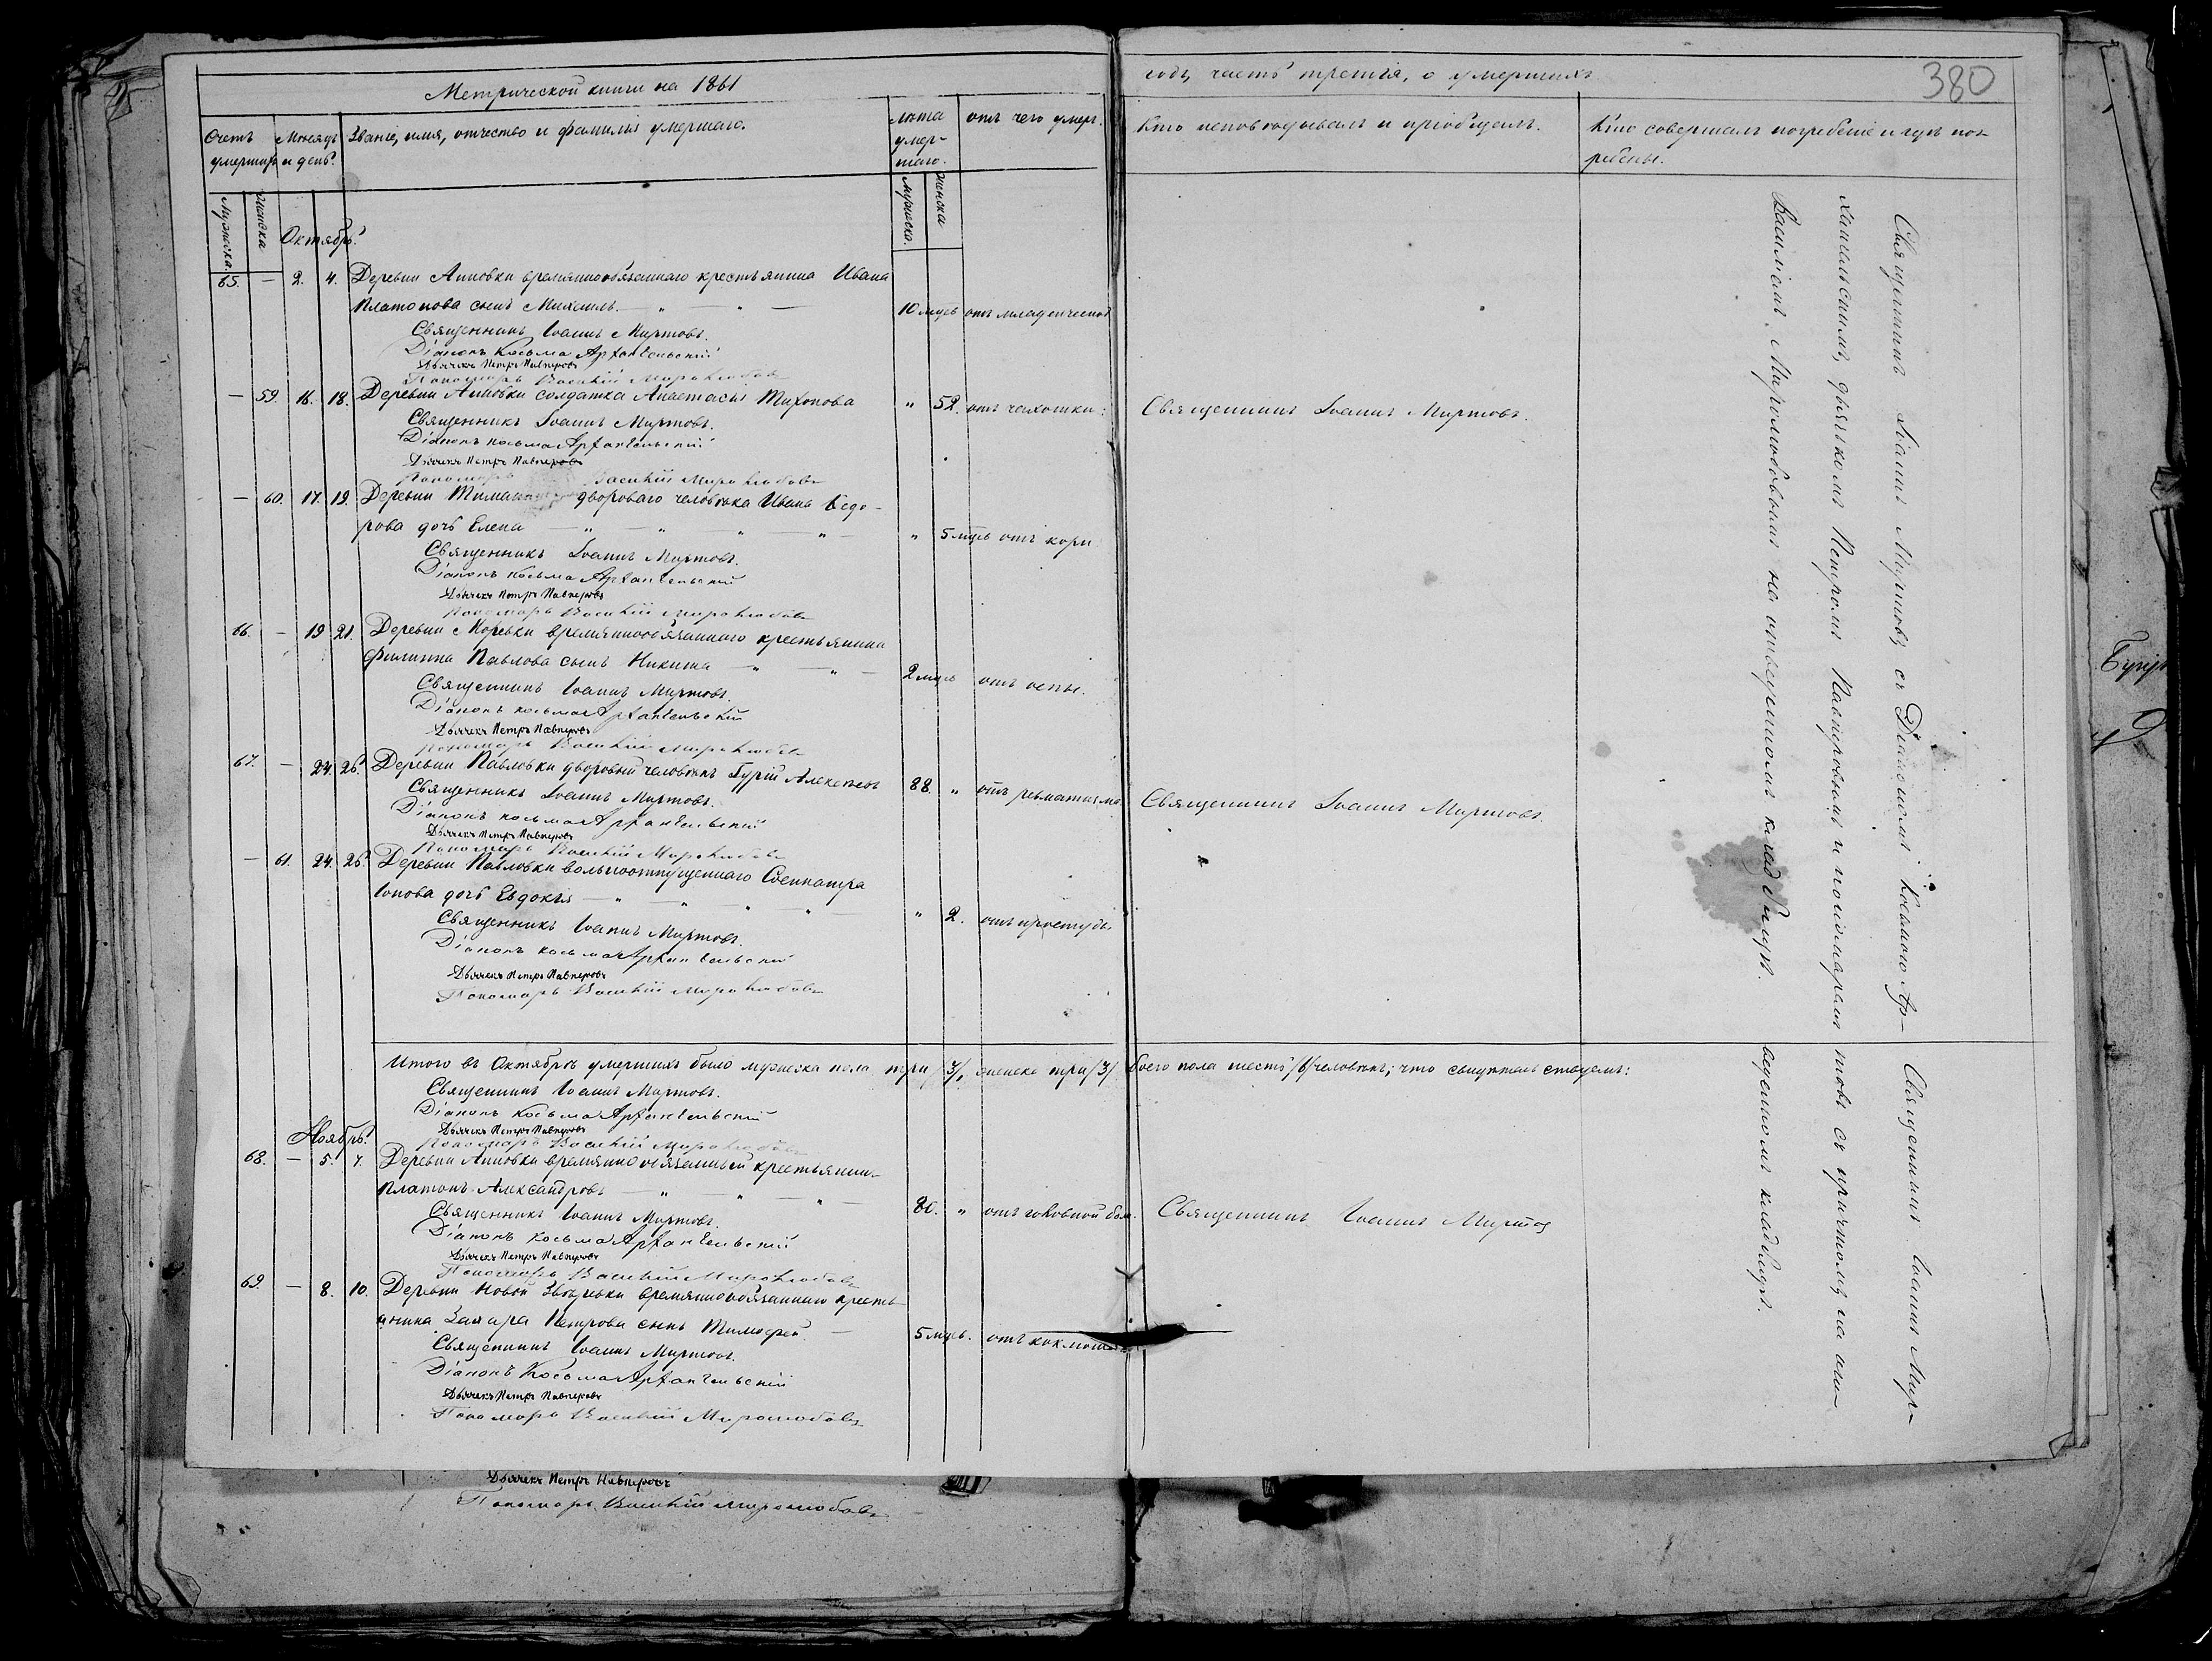 Метрической книги на 1861
годъ, часть третія, о умершихъ
380
Счетъ умершихъ
Мѣсяцъ и день.
Званіе, имя, отчество и фамилія умершаго.
Лѣта умер-
шаго.
отъ чего умеръ.
Кто исповѣдывалъ и пріобщалъ.
Кто совершалъ погребеніе и гдѣ пог-
ребены.
Мужеска.
Женска
Мужеска.
Женска
Октябрь.
65. — 2. 4. Деревни Анновки времяннообязаннаго крестьянина Ивана
Платонова сынъ Михаилъ. — " — " — 10 мцъ отъ младенческой
Священникъ Іоаннъ Миртовъ.
Діаконъ Косьма Архангельскій
Дьячекъ Петръ Павперовъ
Пономарь Василій Миролюбовъ
— 59. 16. 18. Деревни Анновки солдатка Анастасія Тихонова " 52. отъ чахотки. Священникъ Іоаннъ Миртовъ.
Священникъ Іоаннъ Миртовъ.
Діаконъ Косьма Архангельскій
Дьячекъ Петръ Павперовъ
Пономарь Василій Миролюбовъ
— 60. 17. 19. Деревни двороваго человѣка Ивана Ѳедо-
рова дочь Елена — " — " " — " — " 5 мцъ отъ кори
Священникъ Іоаннъ Миртовъ.
Діаконъ Косьма Архангельскій
Дьячекъ Петръ Павперовъ
Пономарь Василій Миролюбовъ
66. — 19 21. Деревни времяннообязаннаго крестьянина
Филиппа Павлова сынъ Никита — " — " — 2 мцъ отъ оспы.
Священникъ Іоаннъ Миртовъ.
Діаконъ Косьма Архангельскій
Дьячекъ Петръ Павперовъ
Пономарь Василій Миролюбовъ
67. — 24. 26. Деревни Павловки дворовый человѣкъ Гурій Алексѣевъ 88. " отъ ревматизма Священникъ Іоаннъ Миртовъ.
Священникъ Іоаннъ Миртовъ.
Діаконъ Косьма Архангельскій
Дьячекъ Петръ Павперовъ
Пономарь Василій Миролюбовъ
— 61. 24. 26. Деревни Павловки вольноотпущеннаго Сосипатра
Іонова дочь Евдокія — " — " — " — " 2. отъ простуды
Священникъ Іоаннъ Миртовъ.
Діаконъ Косьма Архангельскій
Дьячекъ Петръ Павперовъ
Пономарь Василій Миролюбовъ
Итого въ Октябрѣ умершихъ было мужеска пола три /3/, женска три /3/ обоего пола шесть /6/ человѣкъ; что свидѣтельствуемъ:
Священникъ Іоаннъ Миртовъ.
Діаконъ Косьма Архангельскій
Дьячекъ Петръ Павперовъ
Пономарь Василій Миролюбовъ
Ноябрь.
68. — 5. 7. Деревни Анновки времяннообязанный крестьянин-
Платонъ Александровъ — " — " — " — 80. " отъ головной бол. Священникъ Іоаннъ Миртов
Священникъ Іоаннъ Миртовъ.
Діаконъ Косьма Архангельскій
Дьячекъ Петръ Павперовъ
Пономарь Василій Миролюбовъ
69. — 8. 10. Деревни Новой времяннообязаннаго кресть-
янина Захара Петрова сынъ Тимофей. — 5 мцъ. отъ коклюша
Священникъ Іоаннъ Миртовъ.
Діаконъ Косьма Архангельскій
Дьячекъ Петръ Павперовъ
Пономарь Василій Миролюбовъ
Дьячекъ Петръ Павперовъ
Пономарь Василій Миролюбовъ
Священникъ Іоаннъ Миртовъ съ Діакономъ Косьмою Ар-
хангельскимъ, дьячкомъ Петромъ Павперовымъ и пономаремъ
Василіемъ Миролюбовымъ на отведенномъ кладбищѣ.
Священникъ Іоаннъ Мир-
товъ съ причтомъ, на от-
веденномъ кладбищѣ.